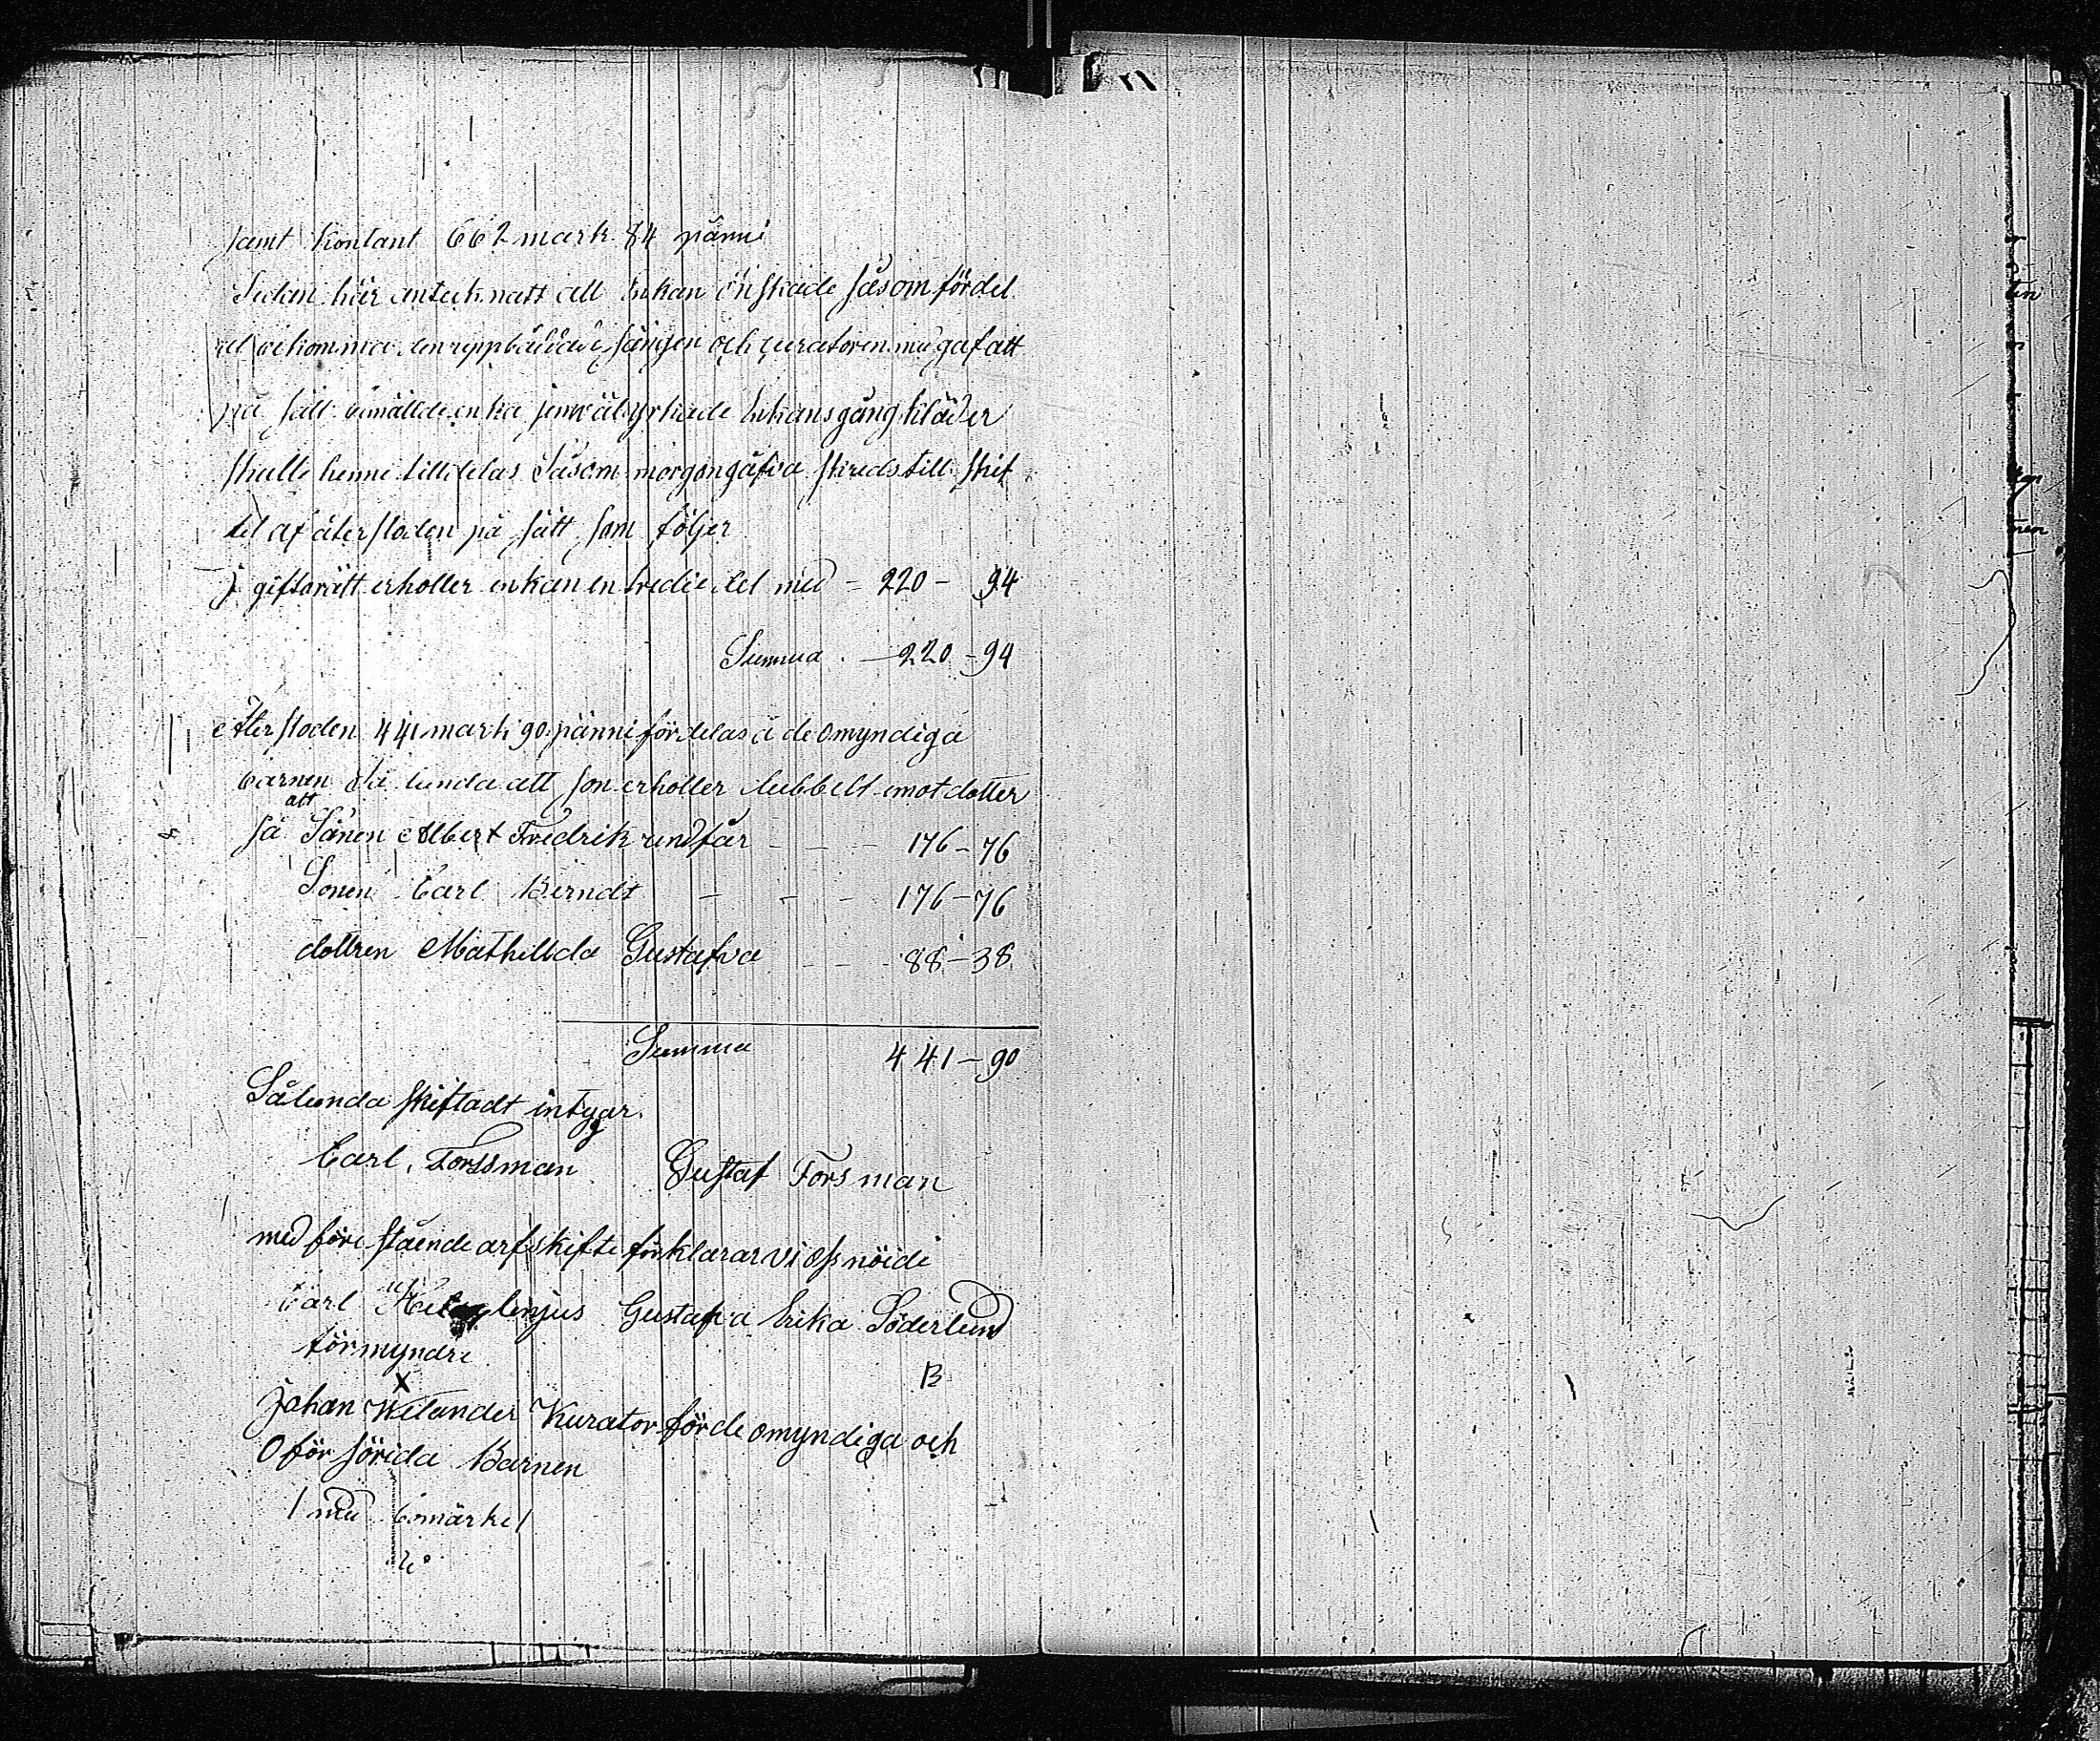 samt kontant 662 mark 84 pänni
Sedan här antecknatt att Enkan önskade såsom fördel
att åtkomma den uppbäddade sängen och curatoren medgaf att
på sätt enka yrkade Enkans gångkläder
skulle henne tilldelas Såsom morgongåfva skreds till skif
tet af återstoden på sätt som följer
J giftorätt erholler enkan en tredie del med - 220 - 94
Summa - 220 - 94
Återstoden 441 mark 90 pänni fördelas å de omyndiga
barnen så lunda att son erholler dubbelt emot dotter
så att Sånen Albert Fredrik undfår - - - 176 - 76
Sonen Carl Berndt - - - 176 - 76
dottren Mathillda Gustafva - - - 88 - 38
Summa 441 - 90
Sålunda skiftadt intygar.
Carl Forssman Gustaf Forsman
med förestående arfskifte förklarar vi oss nöide
Carl Gustafva Erika Söderlund
förmyndre B
X
Johan Welander Kurator för de omyndiga och
Oförsörida Barnen
/ med bomärke /